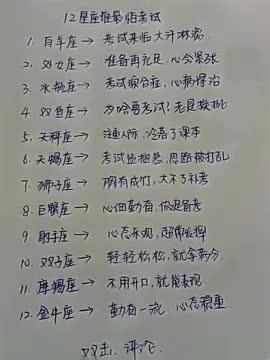 12星座谁最怕考试
1. 白羊座→考试来临大汗淋漓
2. 处女座→准备再充足,心会紧张
3. 水瓶座→考试综合症,心病得治
4. 双鱼座→为啥要考试?老是挨批
5. 天秤座→注重人际,冷落了课本
6. 天蝎座→考试当把握,思路被打乱
7. 狮子座→胸有成竹,大不了补考
8. 巨蟹座→心细勤奋,做足备考
9. 射手座→心态乐观,超常发挥
10. 双子座→轻轻松松,就拿高分
11. 摩羯座→不用开口,就能表现
12. 金牛座→勤奋一流,心态稳重
双击、评论